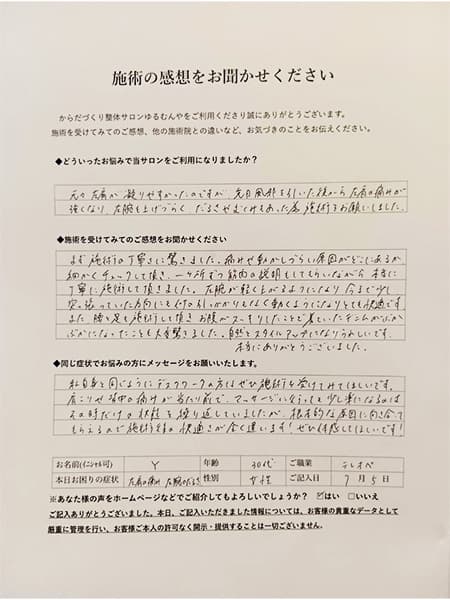 施術の感想をお聞かせください
からだづくり整体サロンゆるむんやをご利用くださり誠にありがとうございます。
施術を受けてみてのご感想、他の施術院との違いなど、お気づきのことをお伝えください。
◆どういったお悩みで当サロンをご利用になりましたか？
元々左肩が凝りやすかったのですが、先日風邪を引いた後から左肩の痛みが
強くなり、左腕も上げづらく だるさやむくみもあった為 施術をお願いしました。
◆施術を受けてみてのご感想をお聞かせください
まず施術の丁寧さに驚きました。痛みや動かしづらい原因がどこにあるか
細かくチェックして頂き、一ヶ所ずつ筋肉の説明もしてもらいながら 本当に
丁寧に施術して頂きました。左腕が軽く上がるようになり 今まで少し
突っ張っていた方向にも何の引っかかりもなく動くようになりとても快適です
また 腰や足も施術して頂き お腹がスッキリしたことで着ていたズボンがぶか
ぶかになったことも大変驚きました。自然とスタイルアップになりうれしいです。
本当にありがとうございました。
◆同じ症状でお悩みの方にメッセージをお願いいたします。
私自身と同じようにデスクワークの方はぜひ施術を受けてみてほしいです。
肩こりや背中の痛みが当たり前で、マッサージに行っても少し楽になるのは
その時だけの状態を繰り返していましたが、根本的な原因に向き合って
もらえるので施術後の快適さが全く違います！ぜひ体感してほしいです！
お名前(イニシャル可) Y 年齢 30代 ご職業 テレオペ
本日お困りの症状 左肩の痛み 左腕のだるさ 性別 女性 ご記入日 7月5日
※あなた様の声をホームページなどでご紹介してもよろしいでしょうか？ ☑はい □いいえ
ご記入ありがとうございました。本日、ご記入いただきました情報については、お客様の貴重なデータとして
厳重に管理を行い、お客様ご本人の許可なく開示・提供することは一切ございません。